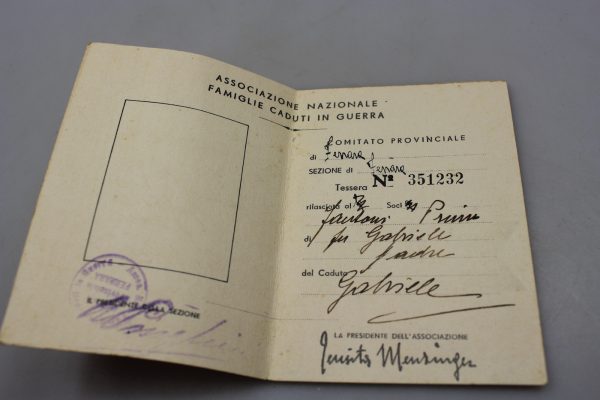 ASSOCIAZIONE NAZIONALE
FAMIGLIE CADUTI IN GUERRA
COMITATO PROVINCIALE
di Ferrara
SEZIONE di Ferrara
Tessera Nº 351232
rilasciata al Soci
di fu Gabriele
padre
del Caduto
Gabriele
IL PRESIDENTE DELLA SEZIONE
LA PRESIDENTE DELL'ASSOCIAZIONE
Mensinger